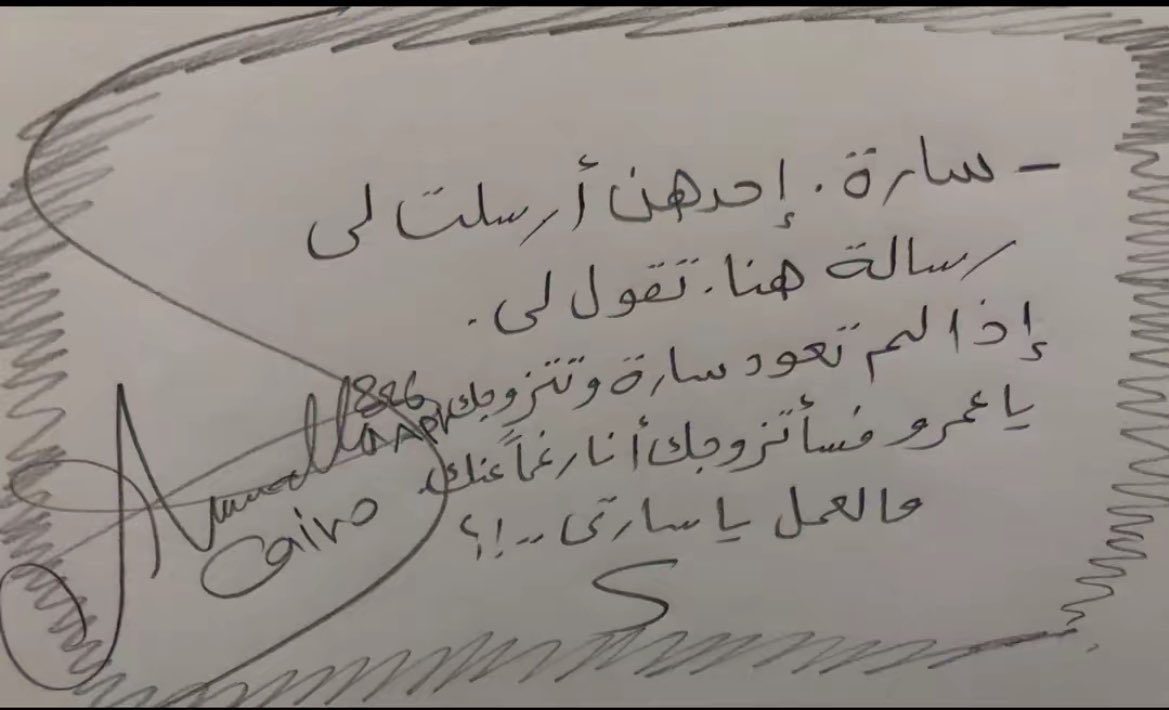 - سارة . إحدهن أرسلت لى
رسالة هنا . تقول لى .
إذا لم تعود سارة وتتزوجك
يا عمرو فسأتزوجك أنا رغماً عنك .
مالعمل يا سارتى ..!؟
S
886
Cairo